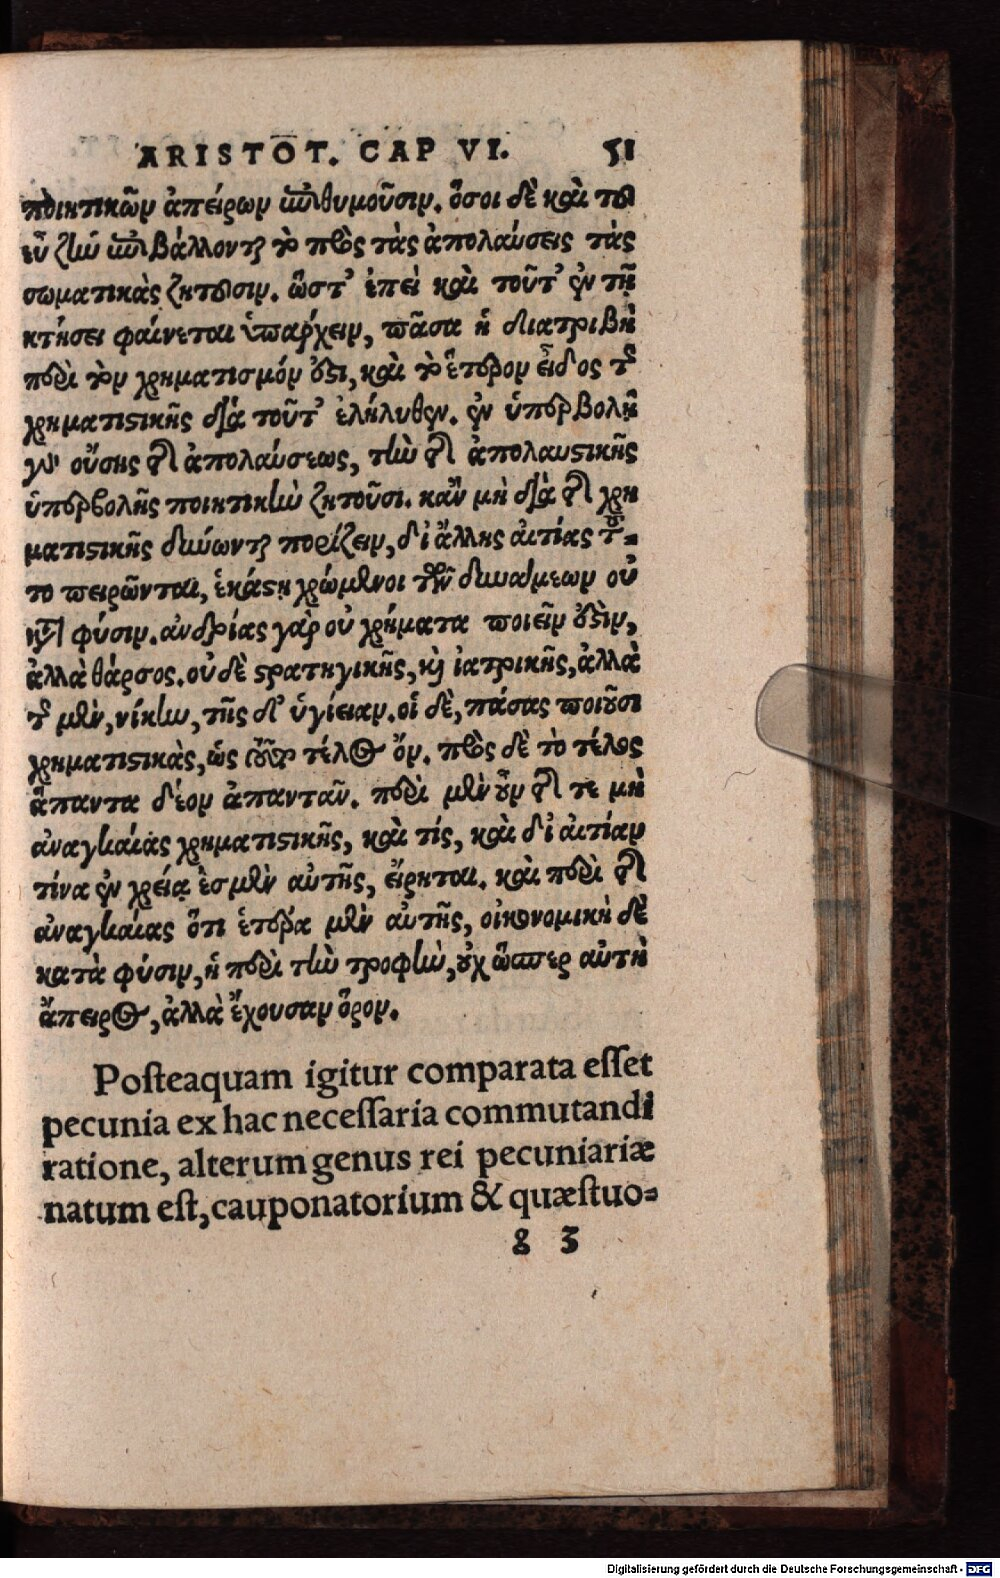 ARISTOT. CAP VI. 51
ποιητικῶν ἀπείρων ἐπιθυμοῦσιν. ὅσοι δὲ καὶ τοῦ
εὖ ζῆν ἐπιβάλλονται τὸ πρὸς τὰς ἀπολαύσεις τὰς
σωματικὰς ζητοῦσιν. ὥστ' ἐπεὶ καὶ τοῦτ' ἐν τῇ
κτήσει φαίνεται ὑπάρχειν, πᾶσα ἡ διατριβὴ
περὶ τὸν χρηματισμόν ἐστι, καὶ τὸ ἕτερον εἶδος τῆς
χρηματιστικῆς διὰ τοῦτ' ἐλήλυθεν. ἐν ὑπερβολῇ
γὰρ οὔσης τῆς ἀπολαύσεως, τὴν τῆς ἀπολαυστικῆς
ὑπερβολῆς ποιητικὴν ζητοῦσι. κἂν μὴ διὰ τῆς χρη
ματιστικῆς δύνωνται πορίζειν, δι' ἄλλης αἰτίας τοῦ-
το πειρῶνται, ἑκάστῃ χρώμενοι τῶν δυνάμεων οὐ
κατὰ φύσιν. ἀνδρίας γὰρ οὐ χρήματα ποιεῖν ἐστὶν,
ἀλλὰ θάρσος. οὐδὲ στρατηγικῆς, καὶ ἰατρικῆς, ἀλλὰ
τῆς μὲν, νίκην, τῆς δ' ὑγίειαν. οἱ δὲ, πάσας ποιοῦσι
χρηματιστικὰς, ὡς τοῦτο τέλος ὄν. πρὸς δὲ τὸ τέλος
ἅπαντα δέον ἀπαντᾶν. περὶ μὲν οὖν τῆς τε μὴ
ἀναγκαίας χρηματιστικῆς, καὶ τίς, καὶ δι' αἰτίαν
τίνα ἐν χρείᾳ ἐσμὲν αὐτῆς, εἴρηται. καὶ περὶ τῆς
ἀναγκαίας ὅτι ἑτέρα μὲν αὐτῆς, οἰκονομικὴ δὲ
κατὰ φύσιν, ἡ περὶ τὴν τροφὴν, οὐχ ὥσπερ αὐτὴ
ἄπειρος, ἀλλὰ ἔχουσαν ὅρον.
Posteaquam igitur comparata esset
pecunia ex hac necessaria commutandi
ratione, alterum genus rei pecuniariæ
natum est, cauponatorium & quæstuo-
g 3
Digitalisierung gefördert durch die Deutsche Forschungsgemeinschaft - DFG